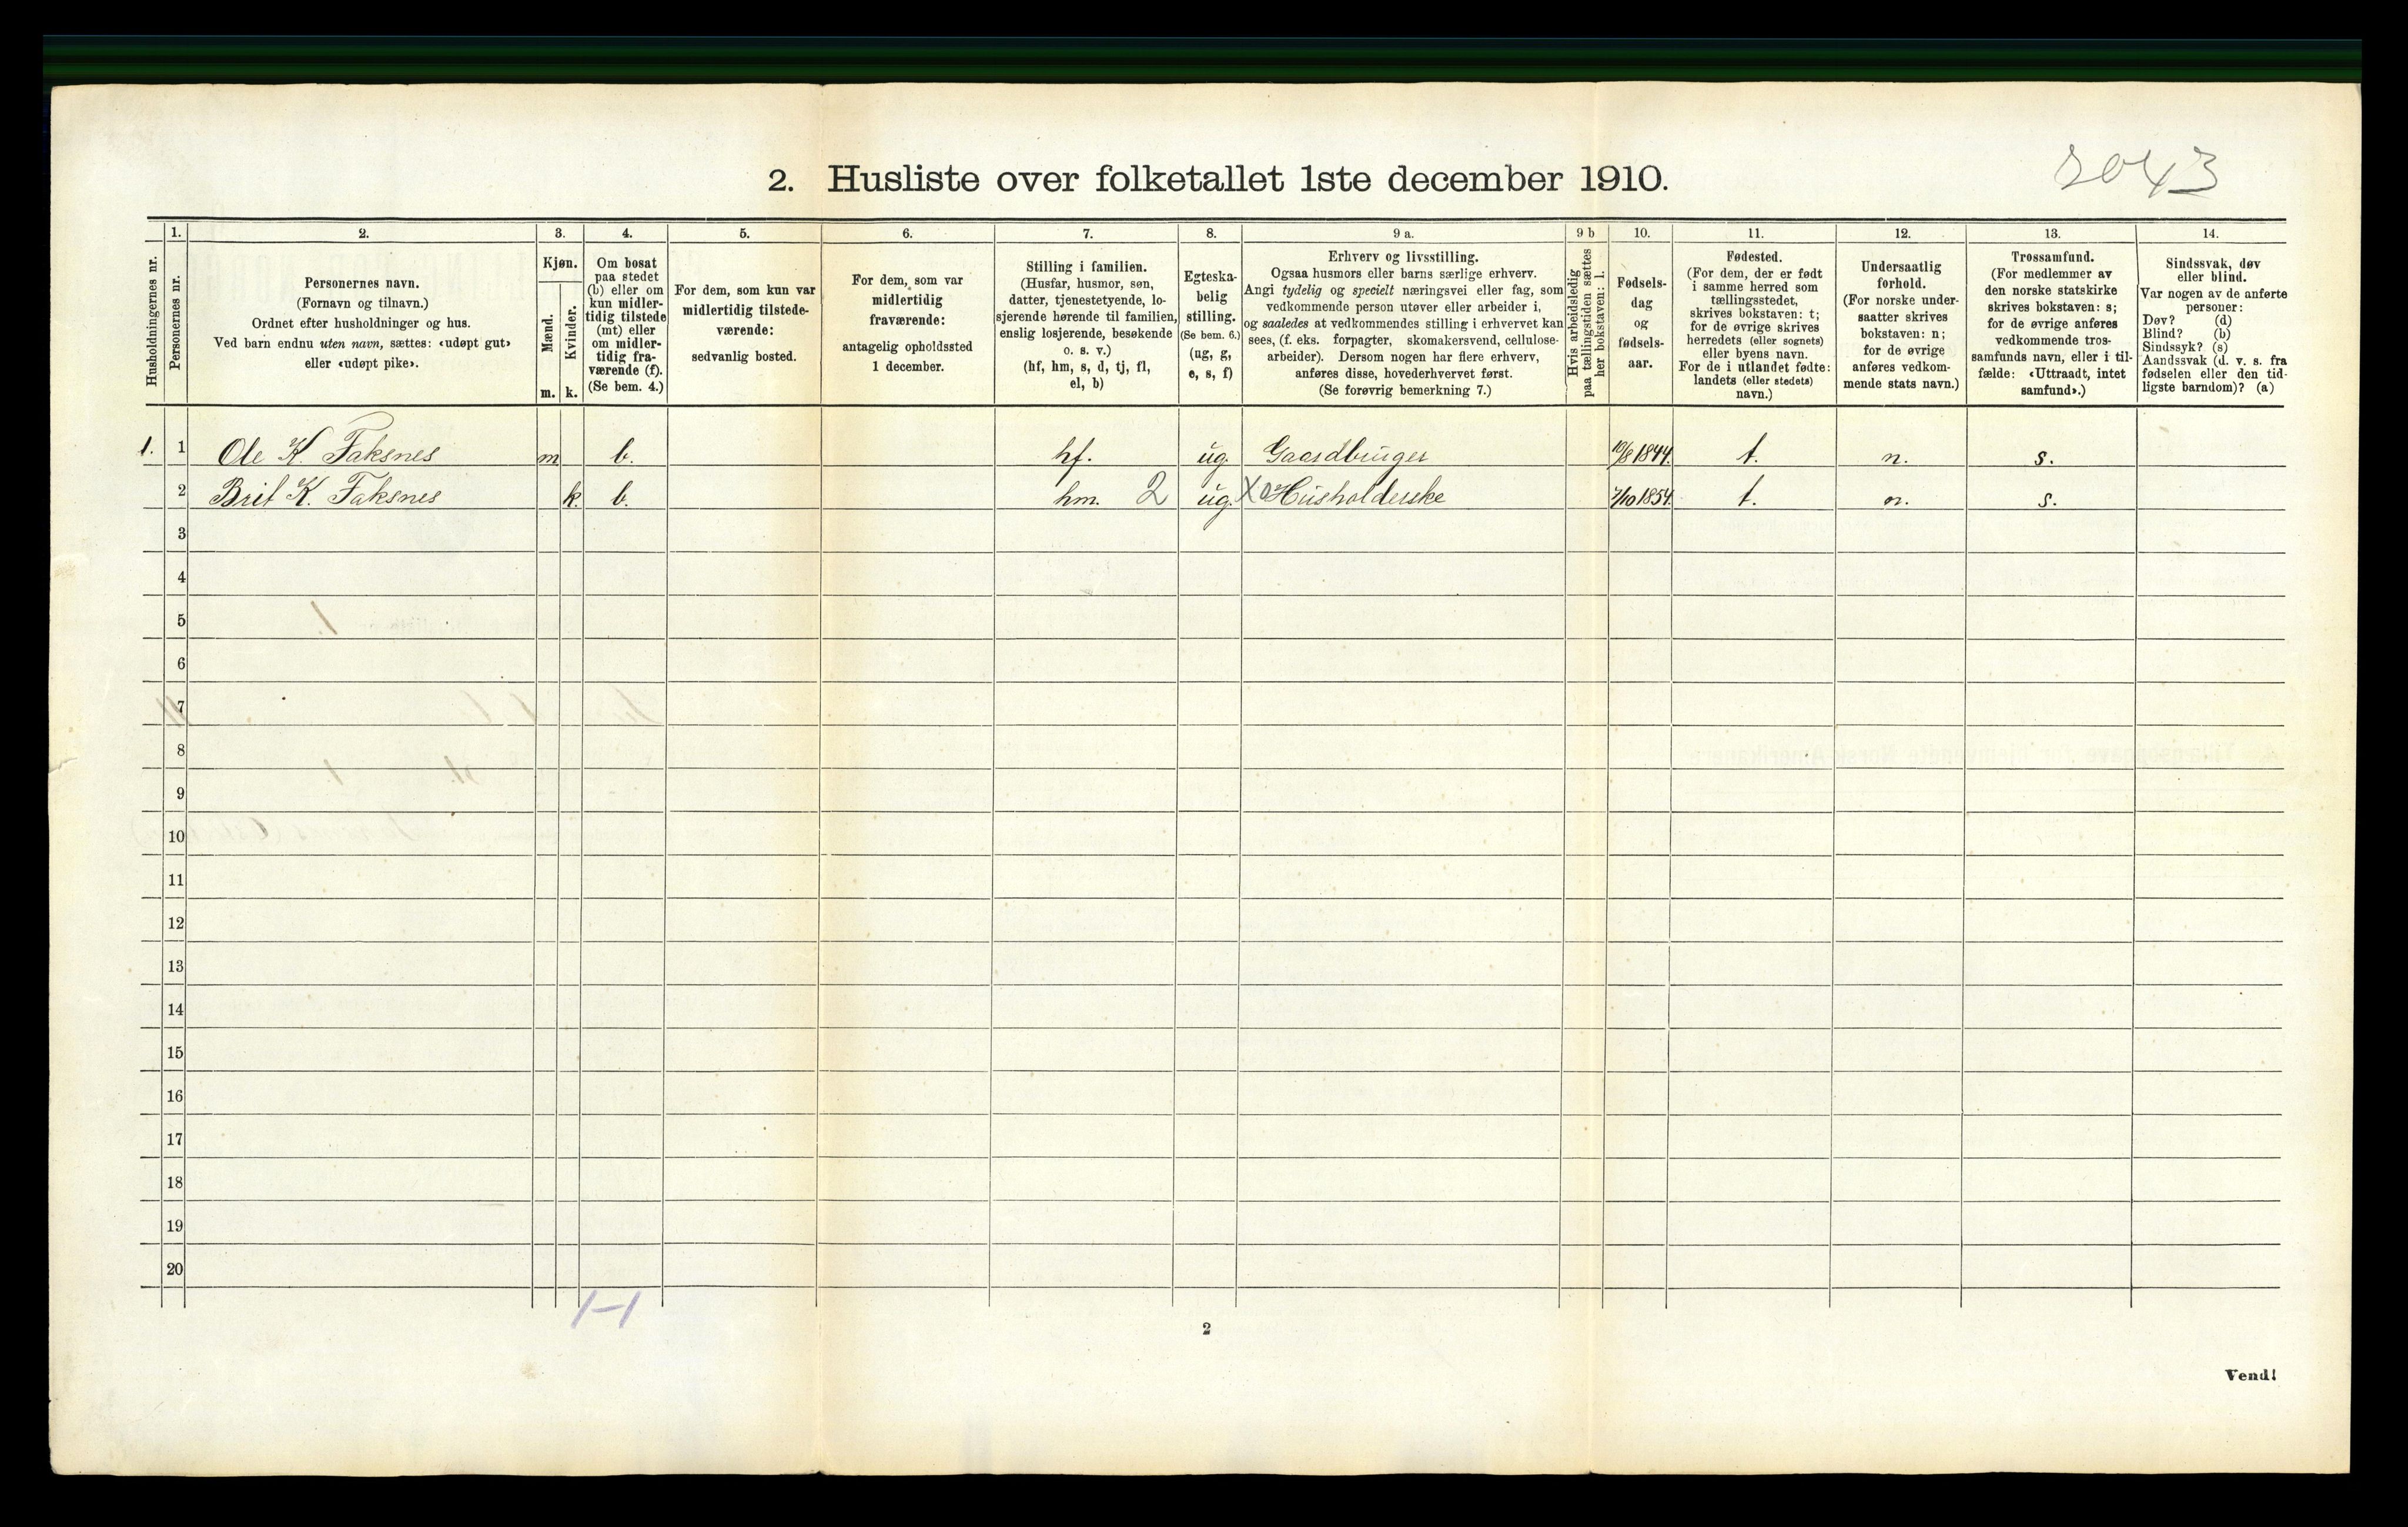 2043
2. Husliste over folketallet 1ste december 1910.
1. 2. 3. 4. 5. 6. 7. 8. 9 a. 9 b 10. 11. 12. 13. 14.
Husholdningernes nr.
Personernes nr.
Personernes navn.
(Fornavn og tilnavn.)
Ordnet efter husholdninger og hus.
Ved barn endnu uten navn, sættes: «udøpt gut»
eller «udøpt pike».
Kjøn.
Mænd.
Kvinder.
m. k.
Om bosat
paa stedet
(b) eller om
kun midler-
tidig tilstede
(mt) eller
om midler-
tidig fra-
værende (f).
(Se bem. 4.)
For dem, som kun var
midlertidig tilstede-
værende:
sedvanlig bosted.
For dem, som var
midlertidig
fraværende:
antagelig opholdssted
1 december.
Stilling i familien.
(Husfar, husmor, søn,
datter, tjenestetyende, lo-
sjerende hørende til familien,
enslig losjerende, besøkende
o. s. v.)
(hf, hm, s, d, tj, fl,
el, b)
Egteska-
belig
stilling.
(Se bem. 6.)
(ug, g,
e, s, f)
Erhverv og livsstilling.
Ogsaa husmors eller barns særlige erhverv.
Angi tydelig og specielt næringsvei eller fag, som
vedkommende person utøver eller arbeider i,
og saaledes at vedkommendes stilling i erhvervet kan
sees, (f. eks. forpagter, skomakersvend, cellulose-
arbeider). Dersom nogen har flere erhverv,
anføres disse, hovederhvervet først.
(Se forøvrig bemerkning 7.)
Hvis arbeidsledig
paa tællingstiden sættes
her bokstaven: l.
Fødsels-
dag
og
fødsels-
aar.
Fødested.
(For dem, der er født
i samme herred som
tællingsstedet,
skrives bokstaven: t;
for de øvrige skrives
herredets (eller sognets)
eller byens navn.
For de i utlandet fødte:
landets (eller stedets)
navn.)
Undersaatlig
forhold.
(For norske under-
saatter skrives
bokstaven: n;
for de øvrige
anføres vedkom-
mende stats navn.)
Trossamfund.
(For medlemmer av
den norske statskirke
skrives bokstaven: s;
for de øvrige anføres
vedkommende tros-
samfunds navn, eller i til-
fælde: «Uttraadt, intet
samfund».)
Sindssvak, døv
eller blind.
Var nogen av de anførte
personer:
Døv? (d)
Blind? (b)
Sindssyk? (s)
Aandssvak (d. v. s. fra
fødselen eller den tid-
ligste barndom)? (a)
1. 1 Ole K. Faksnes m b. hf. ug Gaardbruger 10/8 1844. t. n. s.
2 Brit K. Faksnes k. b. hm. 2 ug. X Husholderske 7/10 1854. t. n. s.
3
4
5
6
7
8
9
10
11
12
13
14
15
16
17
18
19
20
1-1
2
Vend!